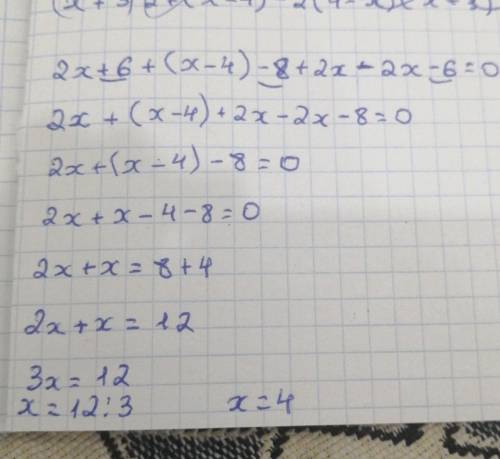 2x+6+(x-4)-8+2x-2x-6=0
2x+(x-4)+2x-2x-8=0
2x+(x-4)-8=0
2x+x-4-8=0
2x+x=8+4
2x+x=12
3x=12
x=12:3 x=4